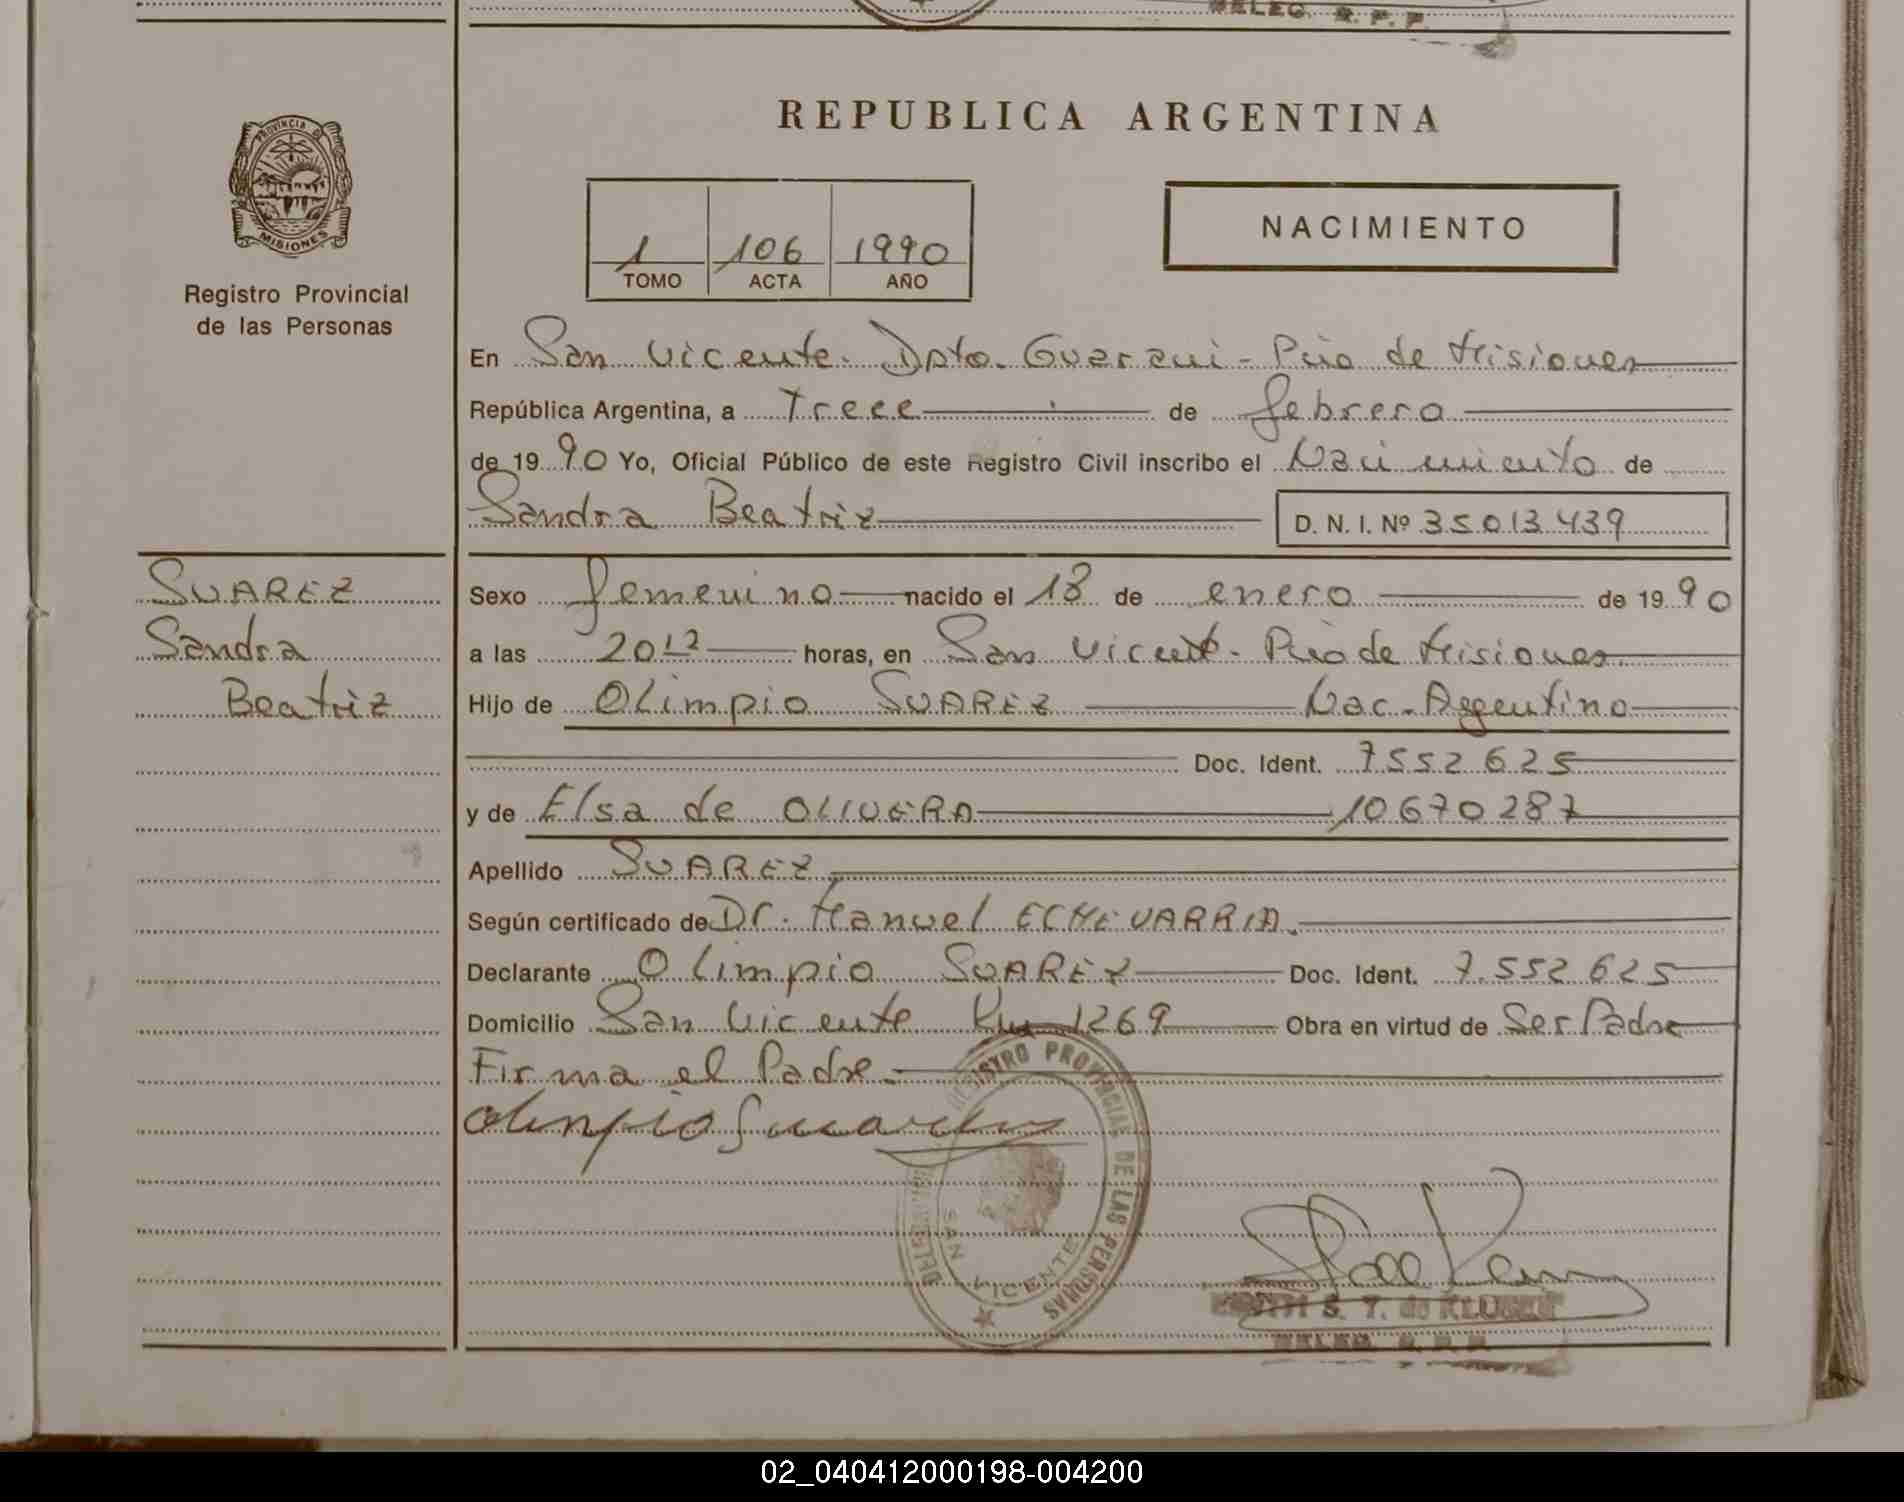 DELEG. R. P. P.
REPUBLICA ARGENTINA
PROVINCIA DE
MISIONES
Registro Provincial
de las Personas
1 106 1990
TOMO ACTA AÑO
NACIMIENTO
En San Vicente. Dpto. Guarani - Pcia de Misiones
República Argentina, a Trece de febrero
de 1990 Yo, Oficial Público de este Registro Civil inscribo el Nacimiento de
Sandra Beatriz D. N. I. Nº 35013439
SUAREZ
Sandra
Beatriz
Sexo femenino nacido el 18 de enero de 1990
a las 20 12 horas, en San Vicente - Pcia de Misiones
Hijo de Olimpio SUAREZ Nac. Argentino
Doc. Ident. 7552625
y de Elsa de OLIVERA 10670287
Apellido SUAREZ
Según certificado de Dr. Manuel ECHEVARRIA.
Declarante Olimpio SUAREZ Doc. Ident. 7.552.625
Domicilio San Vicente Km 1269 Obra en virtud de Ser Padre
Firma el Padre.
REGISTRO PROVINCIAL DE LAS PERSONAS
SAN VICENTE
S. T. de
DELEG. R. P. P.
02_040412000198-004200